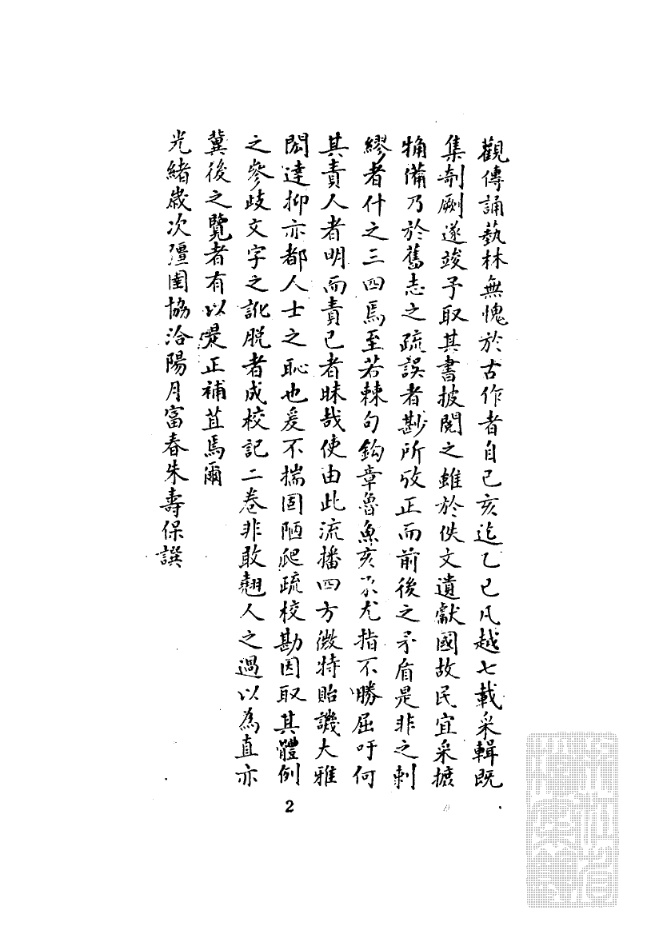 觀傳誦藝林無愧於古作者自己亥迄乙巳凡越七載采輯既
集剞劂遂竣予取其書披閱之雖於佚文遺獻國故民宜采摭
觕備乃於舊志之疏誤者尠所攷正而前後之矛盾是非之剌
繆者什之三四焉至若棘句鈎章魯魚亥豕尤指不勝屈吁何
其責人者明而責己者昧哉使由此流播四方微特貽譏大雅
閎達抑亦都人士之恥也爰不揣固陋爬疏校勘因取其體例
之參歧文字之訛脫者成校記二卷非敢翹人之過以為直亦
冀後之覽者有以是正補苴焉爾
光緒歲次彊圉協洽陽月富春朱壽保譔
2